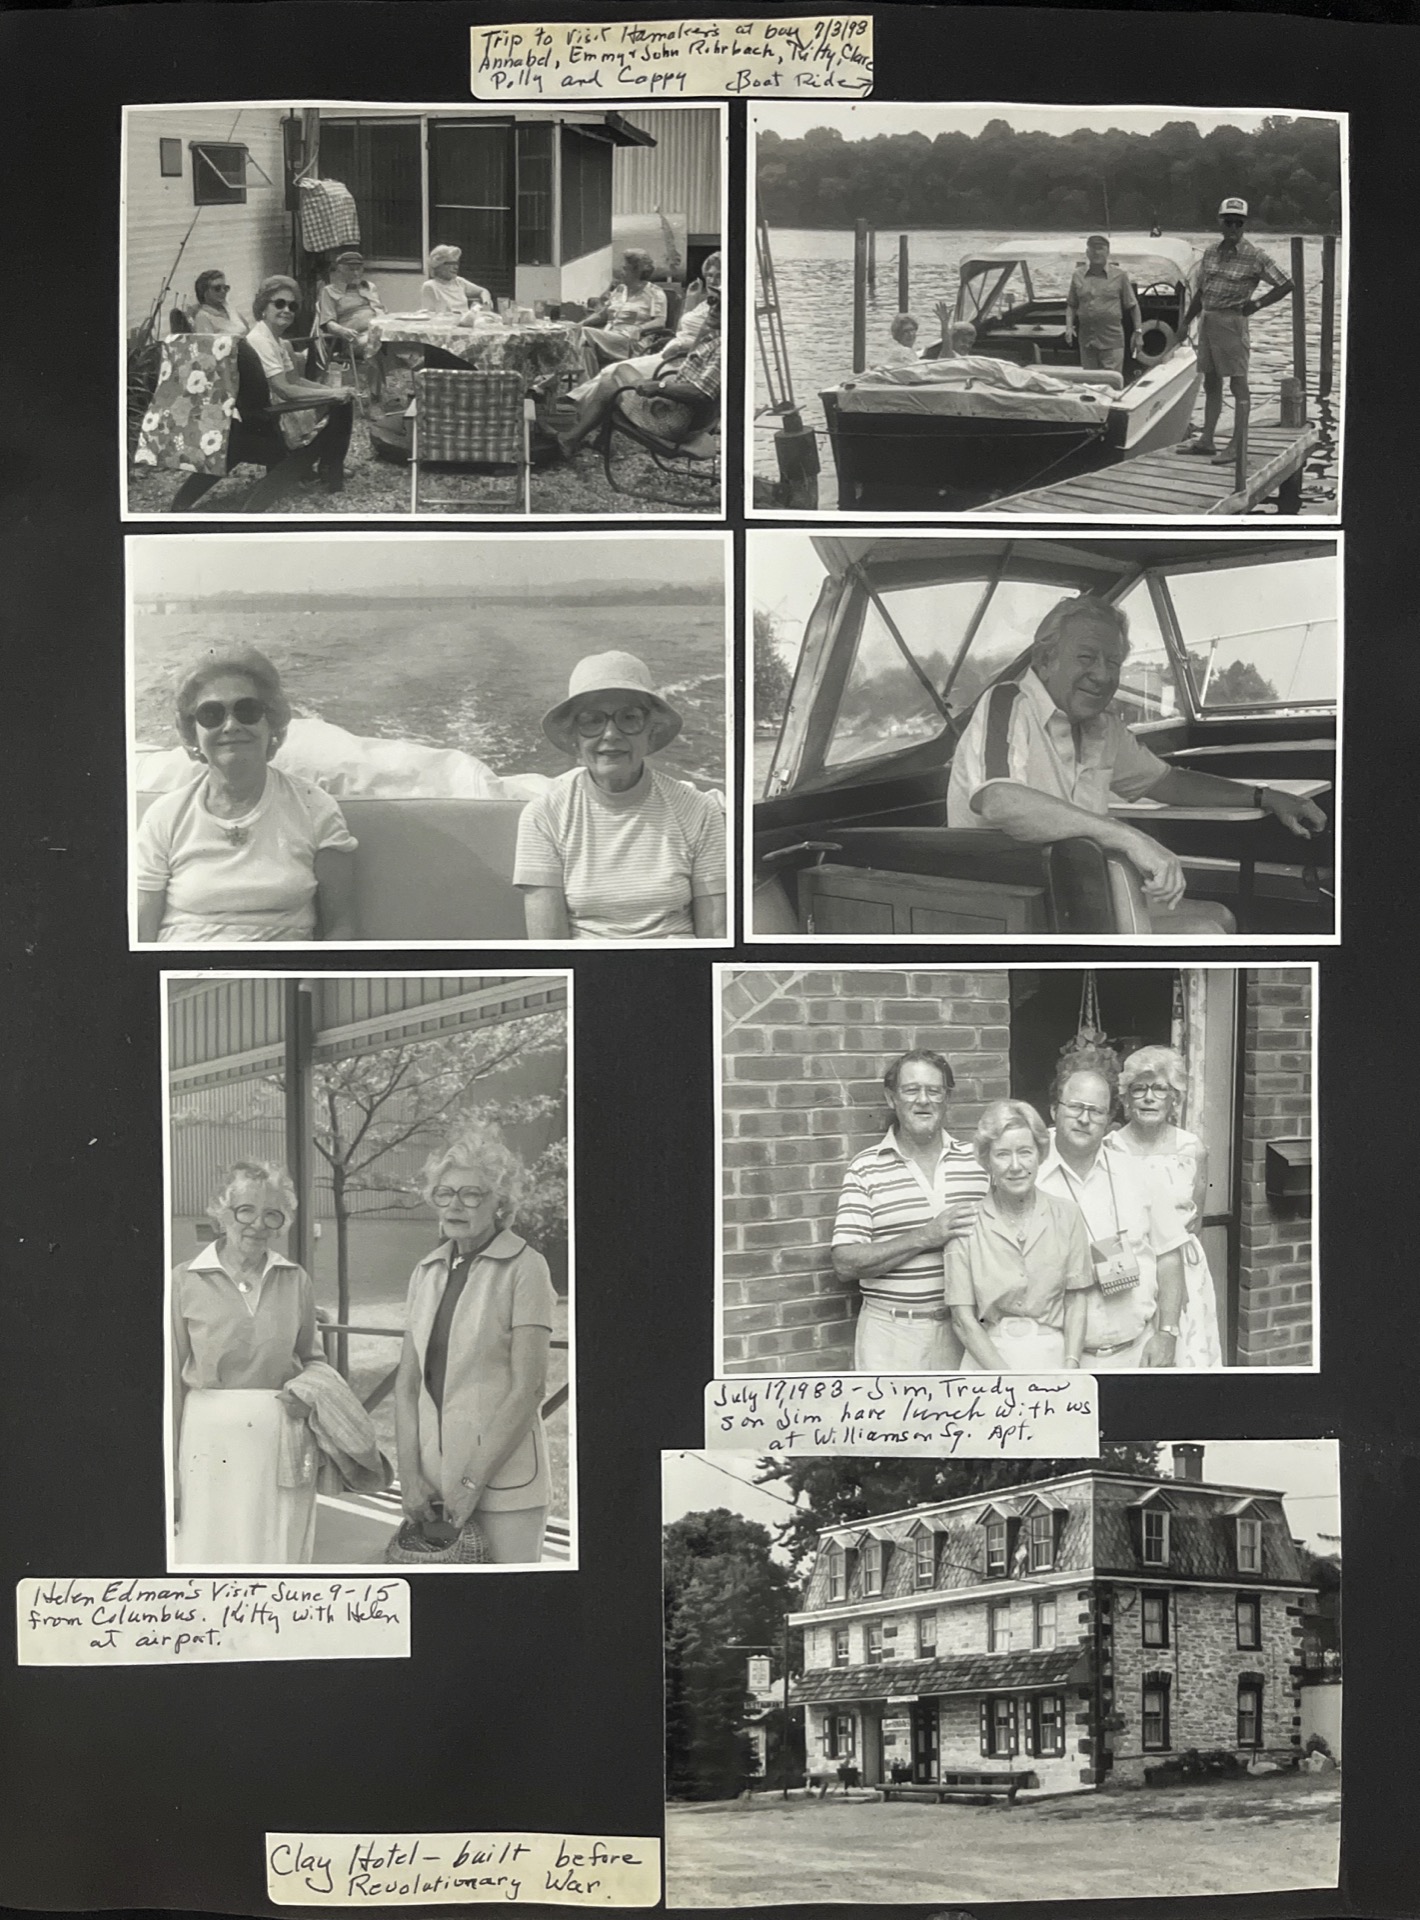 Trip to Visit Hamaker's at bay 7/3/83
Annabel, Emmy + John Rohrbach, Kitty, Clare
Polly and Cappy Boat Ride →
July 17, 1983 - Jim, Trudy and
son Jim have lunch with us
at Williamson Sq. Apt.
Helen Edman's Visit June 9-15
from Columbus. Kitty with Helen
at airport.
Clay Hotel - built before
Revolutionary War.